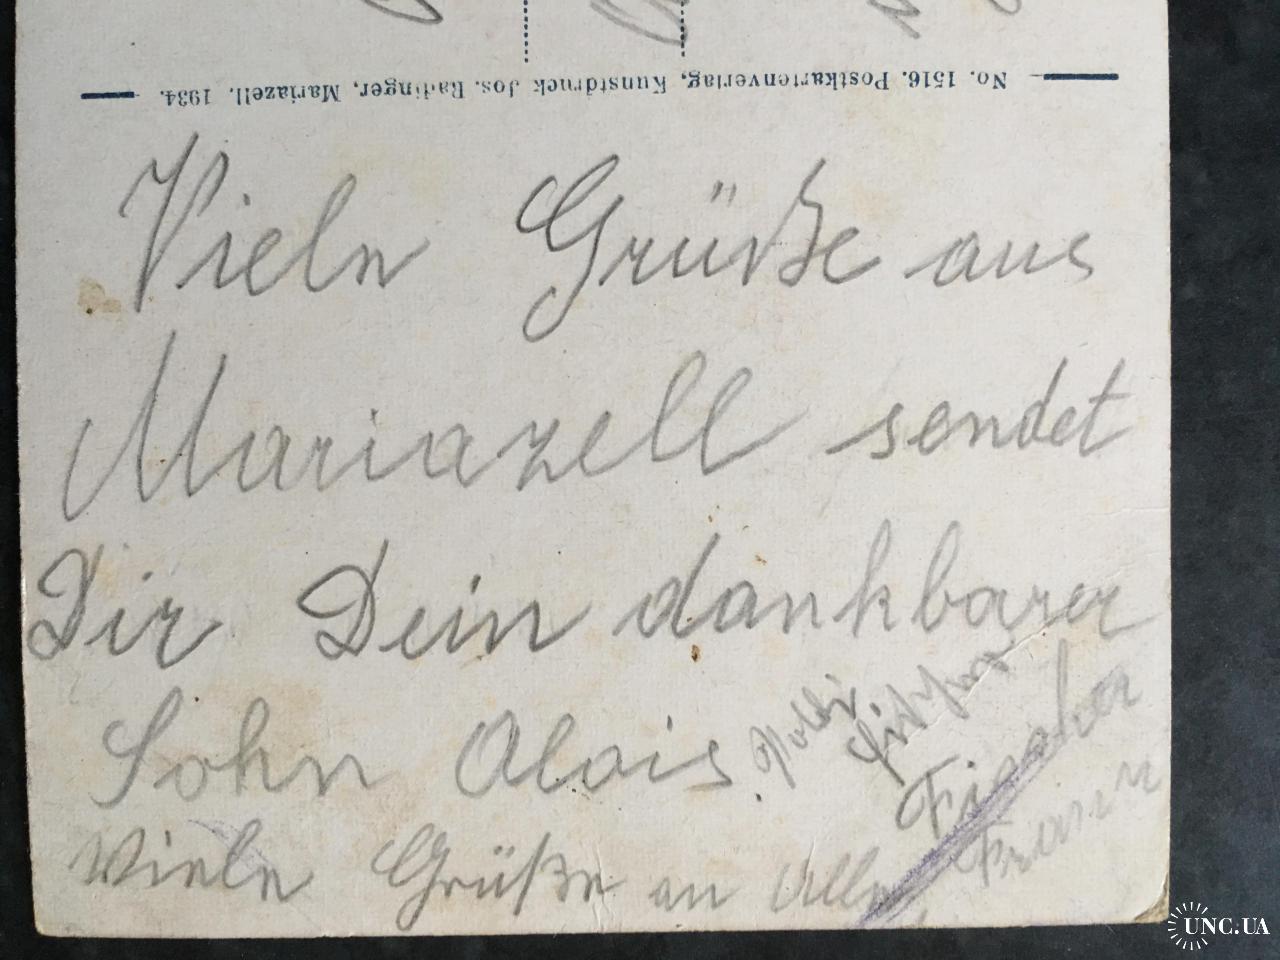 No. 1516. Postkartenverlag, Kunstdruck Jos. Radinger, Mariazell. 1934.
Viele Grüße aus
Mariazell sendet
Dir Dein dankbarer
Sohn Alois
Poldi
Fischer
Franz
Viele Grüße an Alle
UNC.UA